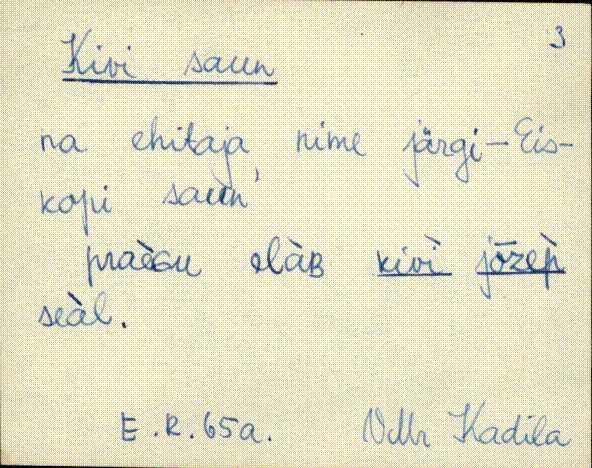 3
Kivi saun
na ehitaja nime järgi – Eis-
kopi saùn'
praèGu elàB kivì jōzep̀
seàl.
E.R. 65a. VMr Kadila